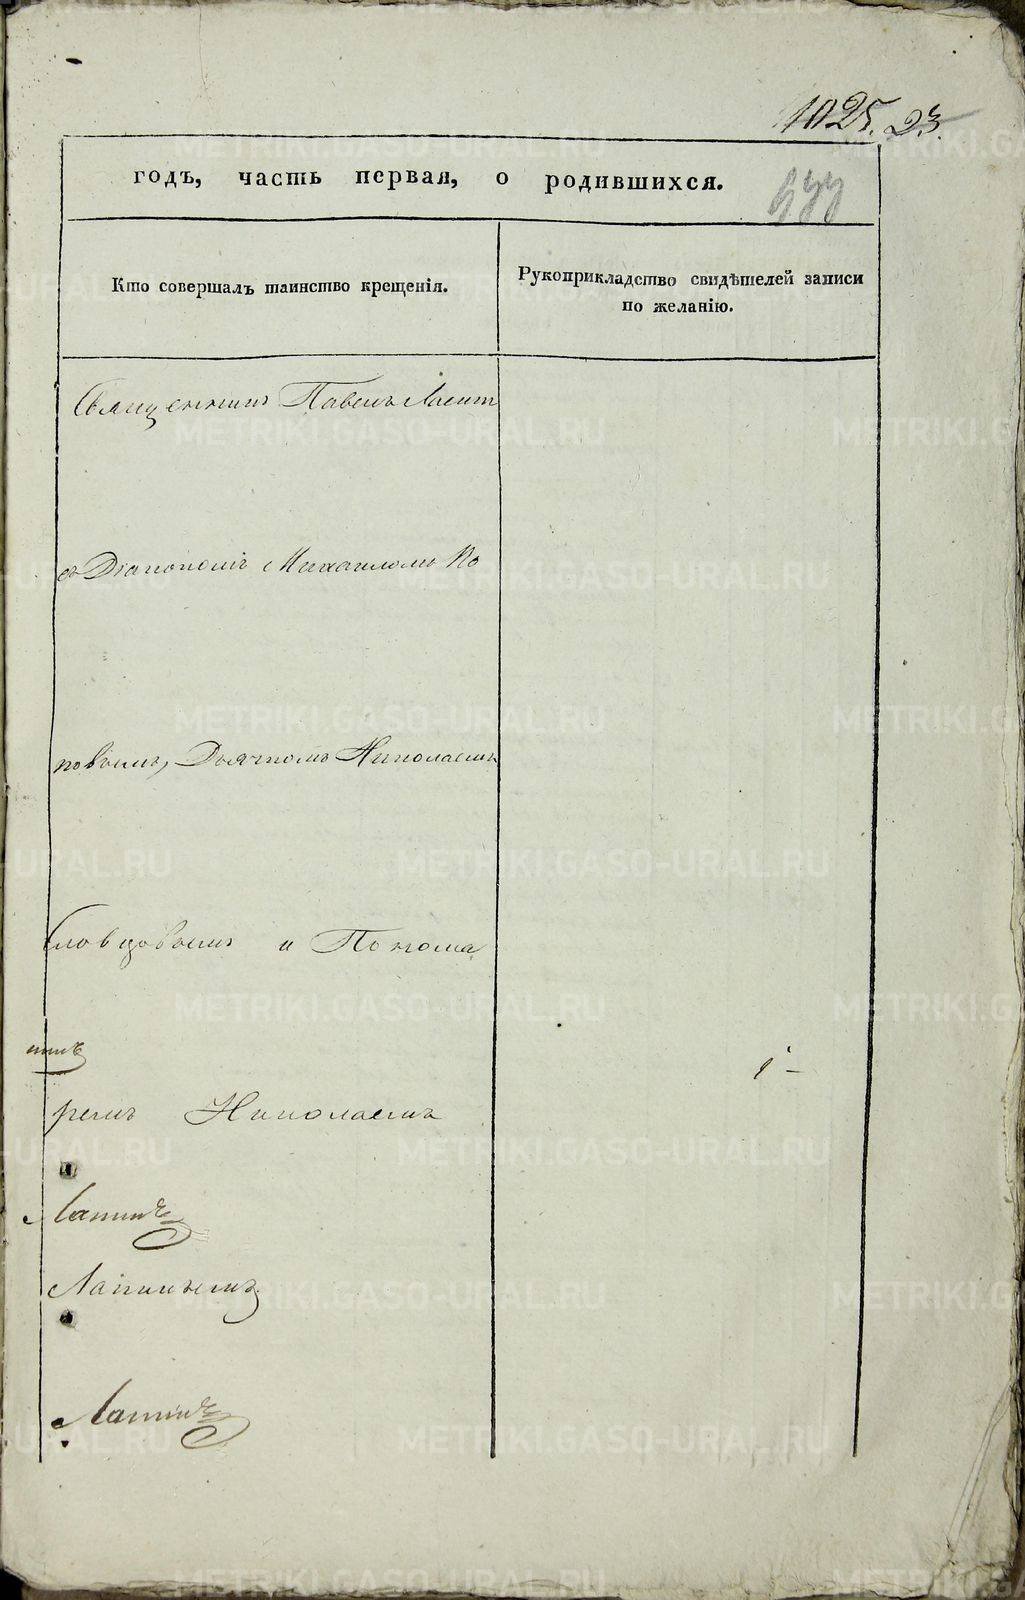 1025. 23.
годъ, часть первая, о родившихся.
Кто совершалъ таинство крещенія.
Рукоприкладство свидѣтелей записи
по желанію.
Священникъ Павелъ
съ Діакономъ Михаиломъ По
повымъ, Дьячкомъ Николаемъ
Словцовымъ и Понома
ремъ Николаемъ
Лапинъ
Лапинымъ
Лапинъ
METRIKI.GASO-URAL.RU